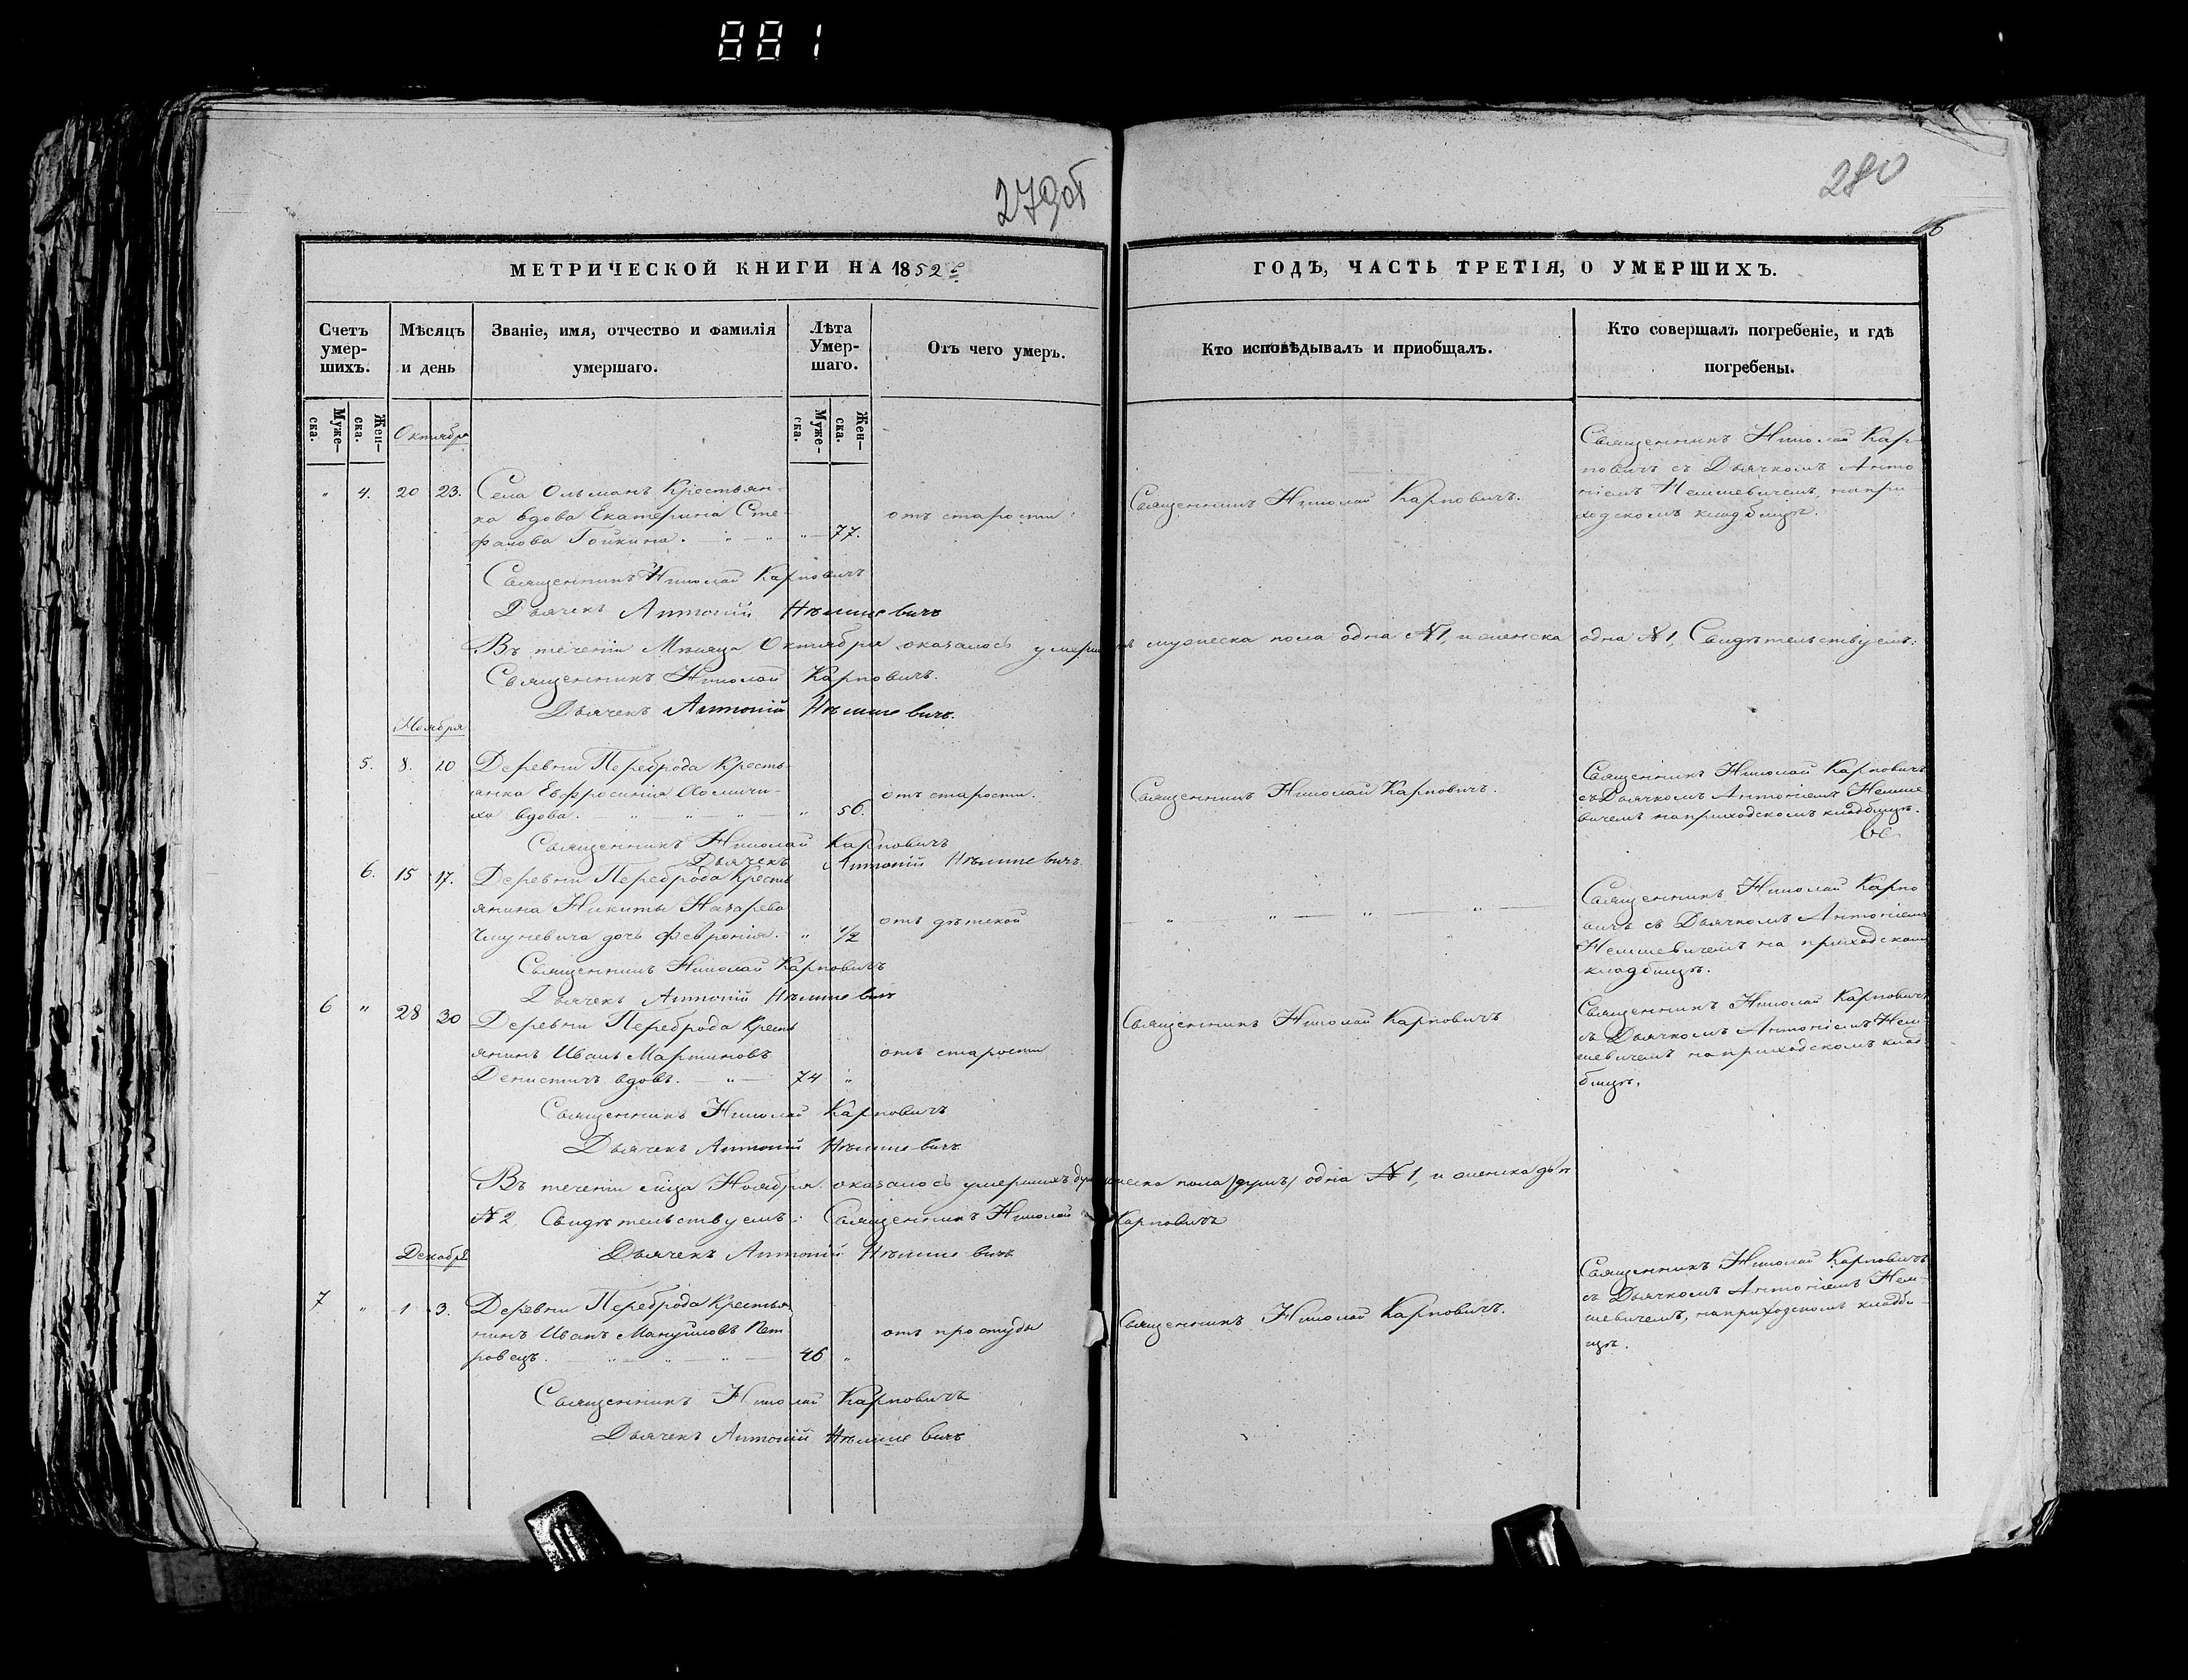 881
279об
280
МЕТРИЧЕСКОЙ КНИГИ НА 1852 й
ГОДЪ, ЧАСТЬ ТРЕТІЯ, О УМЕРШИХЪ.
Счетъ умер-
шихъ.
Мѣсяцъ
и день
Званіе, имя, отчество и фамилія
умершаго.
Лѣта
Умер-
шаго.
Отъ чего умеръ.
Кто исповѣдывалъ и приобщалъ.
Кто совершалъ погребеніе, и гдѣ
погребены.
Муже-
ска.
Жен-
ска.
Муже-
ска.
Жен-
ска.
Октября
" 4. 20 23. Села Ольманъ Крестьян-
ка вдова Екатерина Сте-
фанова Гойкина. " 77.
отъ старости
Священникъ Николай Карповичъ.
Священникъ Николай Кар-
повичъ съ Дьячкомъ Анто
ніемъ Немшевичемъ, на при
ходскомъ кладбищѣ.
Священникъ Николай Карповичъ
Дьячекъ Антоній Нѣмшевичъ
Въ теченіи Мѣсяца Октября оказалось умершихъ мужеска пола одна №1, и женска одна №1, Свидѣтельствуемъ:
Священникъ Николай Карповичъ.
Дьячекъ Антоній Нѣмшевичъ.
Ноября
5. 8. 10 Деревни Переброда Кресть-
янка Евфросинія
ха вдова. " 56.
отъ старости.
Священникъ Николай Карповичъ.
Священникъ Николай Карповичъ
съ Дьячкомъ Антоніемъ Немше
вичемъ на приходскомъ кладбищѣ.
Священникъ Николай Карповичъ
Дьячекъ Антоній Нѣмшевичъ.
6. 15 17. Деревни Переброда Кресть
янина Никиты Назарева
дочь Феѵронія. " 1/2
отъ дѣтской
Священникъ Николай Карпо
вичъ съ Дьячкомъ Антоніемъ
Немшевичемъ на приходскомъ
кладбищѣ.
Священникъ Николай Карповичъ
Дьячекъ Антоній Нѣмшевичъ
6 " 28 30 Деревни Переброда Кресть
янинъ Иванъ Мартиновъ
Денисичъ вдовъ. 74 "
отъ старости
Священникъ Николай Карповичъ
Священникъ Николай Карповичъ
съ Дьячкомъ Антоніемъ Нем-
шевичемъ на приходскомъ клад-
бищѣ.
Священникъ Николай Карповичъ
Дьячекъ Антоній Нѣмшевичъ.
Въ теченіи мѣсяца Ноября оказалось умершихъ мужеска пола душъ одна №1, и женска двѣ
№2. Свидѣтельствуемъ: Священникъ Николай Карповичъ
Дьячекъ Антоній Нѣмшевичъ
Декабря
7 " 1 3. Деревни Переброда Крестья-
нинъ Иванъ Мануйловъ Пет
ровецъ. 46 "
отъ простуды
Священникъ Николай Карповичъ.
Священникъ Николай Карповичъ
съ Дьячкомъ Антоніемъ Нем-
шевичемъ, на приходскомъ кладби-
щѣ.
Священникъ Николай Карповичъ
Дьячекъ Антоній Нѣмшевичъ